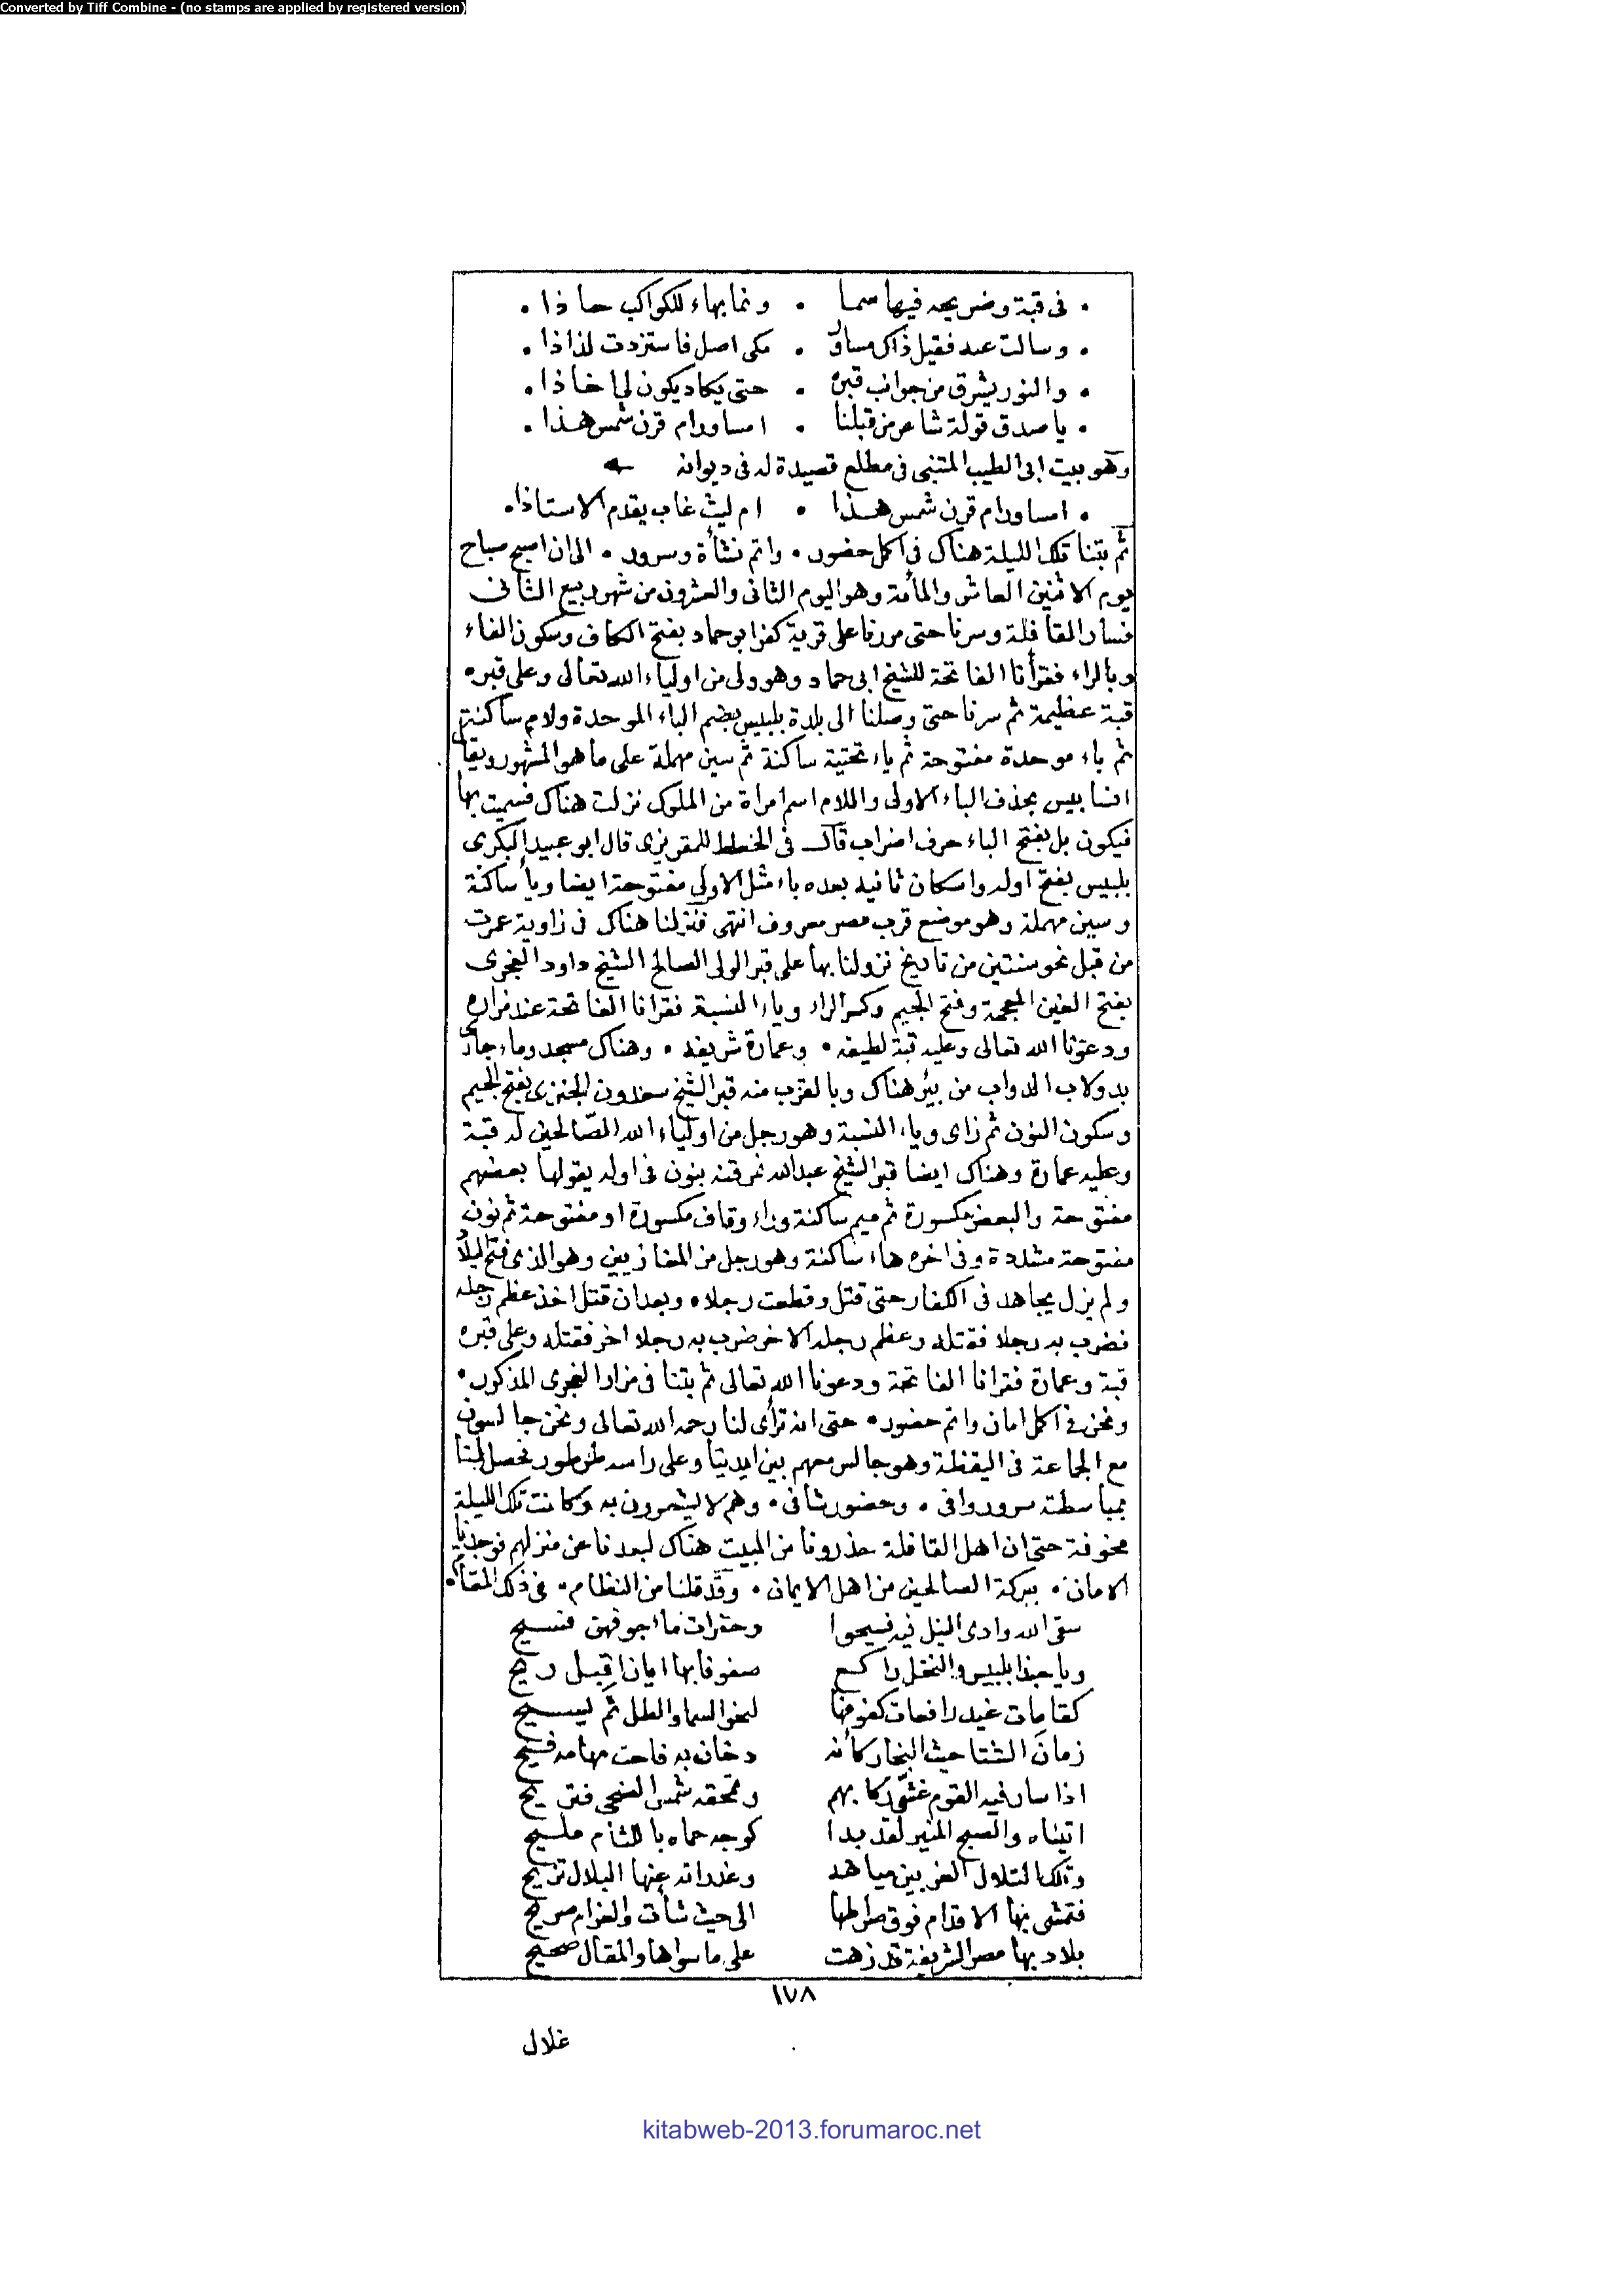 Converted by Tiff Combine - (no stamps are applied by registered version)
• فى قبة وضريحه فيها سما • ونما بهاء للكواكب حاذا •
• وسالت عنه فقيل ذاك مساور • مكى اصل فاستزدت لذاذا •
• والنور يشرق من جوانب قبره • حتى يكاد يكون لى اخاذا •
• يا صدق قولة شاعر من قبلنا • امساور ام قرن شمس هذا •
وهو بيت ابى الطيب المتنبى فى مطلع قصيدة له فى ديوانه
• امساور ام قرن شمس هذا • ام ليث غاب يقدم الاستاذا •
ثم بتنا تلك الليلة هناك فى اكمل حضور • واتم نشأة وسرور • الى ان اصبح صباح
يوم الاثنين العاشر والمأمة وهو اليوم الثانى والعشرون من شهر ربيع الثانى
فسار القافلة وسرنا حتى مررنا على قرية كفر ابو حماد بفتح الكاف وسكون الفاء
وبالراء فقرأنا الفاتحة للشيخ ابى حماد وهو ولى من اولياء الله تعالى وعلى قبره
قبة عظيمة ثم سرنا حتى وصلنا الى بلدة بلبيس بضم الباء الموحدة ولام ساكنة
ثم باء موحدة مفتوحة ثم ياء تحتية ساكنة ثم سين مهملة على ما هو المشهور ويقال
انما بيس بحذف الباء الاولى واللام اسم امراة من الملوك نزلت هناك فسميت بها
فيكون بل بفتح الباء حرف اضراب قال فى الخطط للمقريزى قال ابو عبيد البكرى
بلبيس بفتح اوله واسكان ثانيه بعده باء مثل الاولى مفتوحة ايضا ويأ ساكنة
وسين مهملة وهو موضع قرب مصر معروف انتهى فنزلنا هناك فى زاوية عمرت
من قبل نحو سنتين من تاريخ نزولنا بها على قبر الولى الصالح الشيخ داود الغجرى
بفتح الغين المعجمة وفتح الجيم وكسر الراء وياء النسبة فقرانا الفاتحة عند مزاره
ودعونا الله تعالى وعليه قبة لطيفه • وعمارة شريفه • وهناك مسجد وماء جار
بدولاب الدواب من بئر هناك وبالقرب منه قبر الشيخ سعدون الجنزى بفتح الجيم
وسكون النون ثم زاى وياء النسبة وهو رجل من اولياء الله الصالحين له قبة
وعليه عمارة وهناك ايضا قبر الشيخ عبد الله نمرقنه بنون فى اوله يقولها بعضهم
مفتوحة والبعض مكسورة ثم ميم ساكنة وراء وقاف مكسورة او مفتوحة ثم نون
مفتوحة مشددة وفى اخره هاء ساكنة وهو رجل من المغازيين وهو الذى فتح
ولم يزل يجاهد فى الكفار حتى قتل وقطعت رجلاه وبعد ان قتل اخذ عظم رجله
فضرب به رجلا فقتله وعظم رجله الاخر ضرب به رجلا اخر فقتله وعلى قبره
قبة وعمارة فقرانا الفاتحة ودعونا الله تعالى ثم بتنا فى مزار الغجرى المذكور •
ونحن فى اكمل امان واتم حضور • حتى انه ترأى لنا رحمه الله تعالى ونحن جالسون
مع الجماعة فى اليقظة وهو جالس معهم بين ايدينا وعلى راسه طرطور فحصل لنا
بمباسطته سرور وافى • وحضور شافى • وهم لا يشعرون به وكانت تلك الليلة
مخوفة حتى ان اهل القافلة حذرونا من المبيت هناك لبعدنا عن منزلهم فوجدنا
الامان • ببركة الصالحين من اهل الايمان • وقد قلنا من النظام • فى ذلك المقام •
سقى الله وادى النيل فيه فسيحوا وحقرات ما اجوفهن فسيح
ويا حبذا بلبيس والنخل راكع صفوفا بها ايان اقبل ريح
كقامات غيد رافعات كفوفها لنحو السما والطل ثم يسيح
زمان الشتا حيث البخار كأنه دخان به فاحت مهامه فيح
اذا سار فيه القوم غشى ركابهم وتمحقه شمس الضحى فتريح
اتيناه والصبح المنير لقد بدا كوجه حماه باللثام مليح
وتلك التلال العفر بين مياهه وغدرانه عنها البلال تزيح
فتمشى بنها الاقدام فوق صراطها الى حيث شأت والغرام صريح
بلاد بها مصر الشريفة قد زهت على ما سواها والمقال صحيح
١٧٨
غلال
kitabweb-2013.forumaroc.net